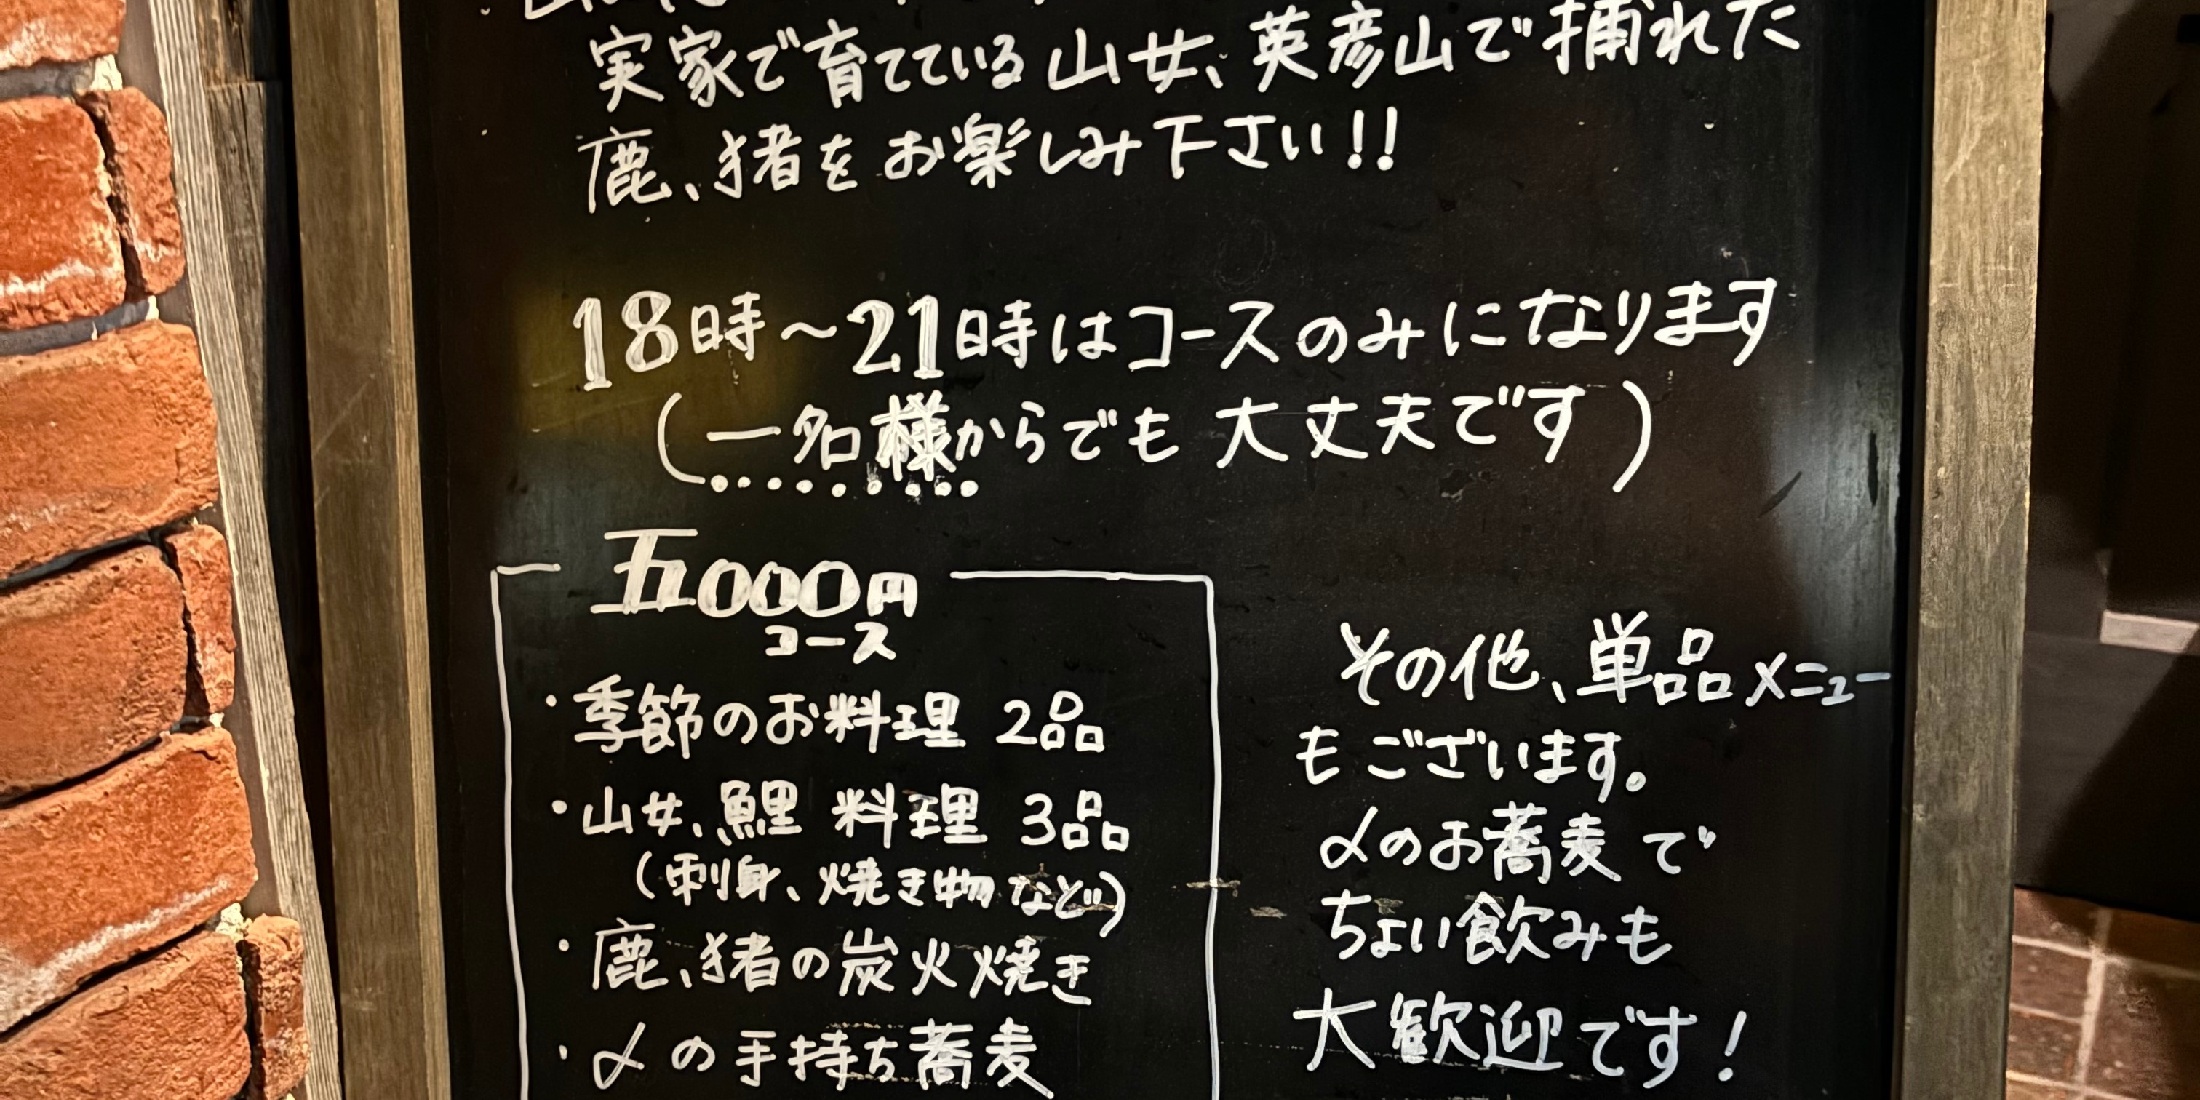 実家で育てている山女、英彦山で捕れた
鹿、猪をお楽しみ下さい!!
18時〜21時はコースのみになります
(一名様からでも大丈夫です)
五000円
コース
・季節のお料理 2品
・山女、鯉 料理 3品
(刺身、焼き物など)
・鹿、猪の炭火焼き
・〆の手持ち蕎麦
その他、単品メニュー
もございます。
〆のお蕎麦で
ちょい飲みも
大歓迎です!